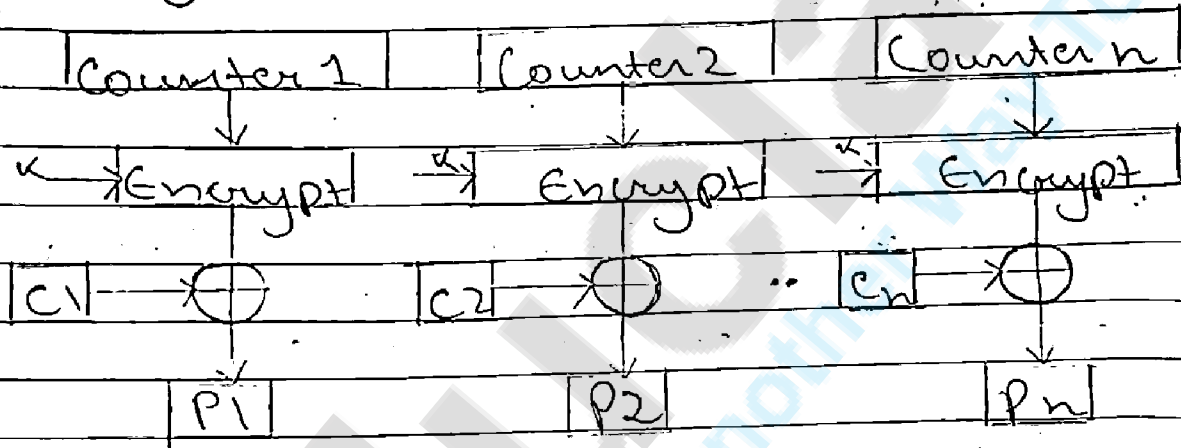 Counter 1 Counter 2 Counter n
K Encrypt K Encrypt K Encrypt
C1 C2 .. Cn
P1 P2 Pn